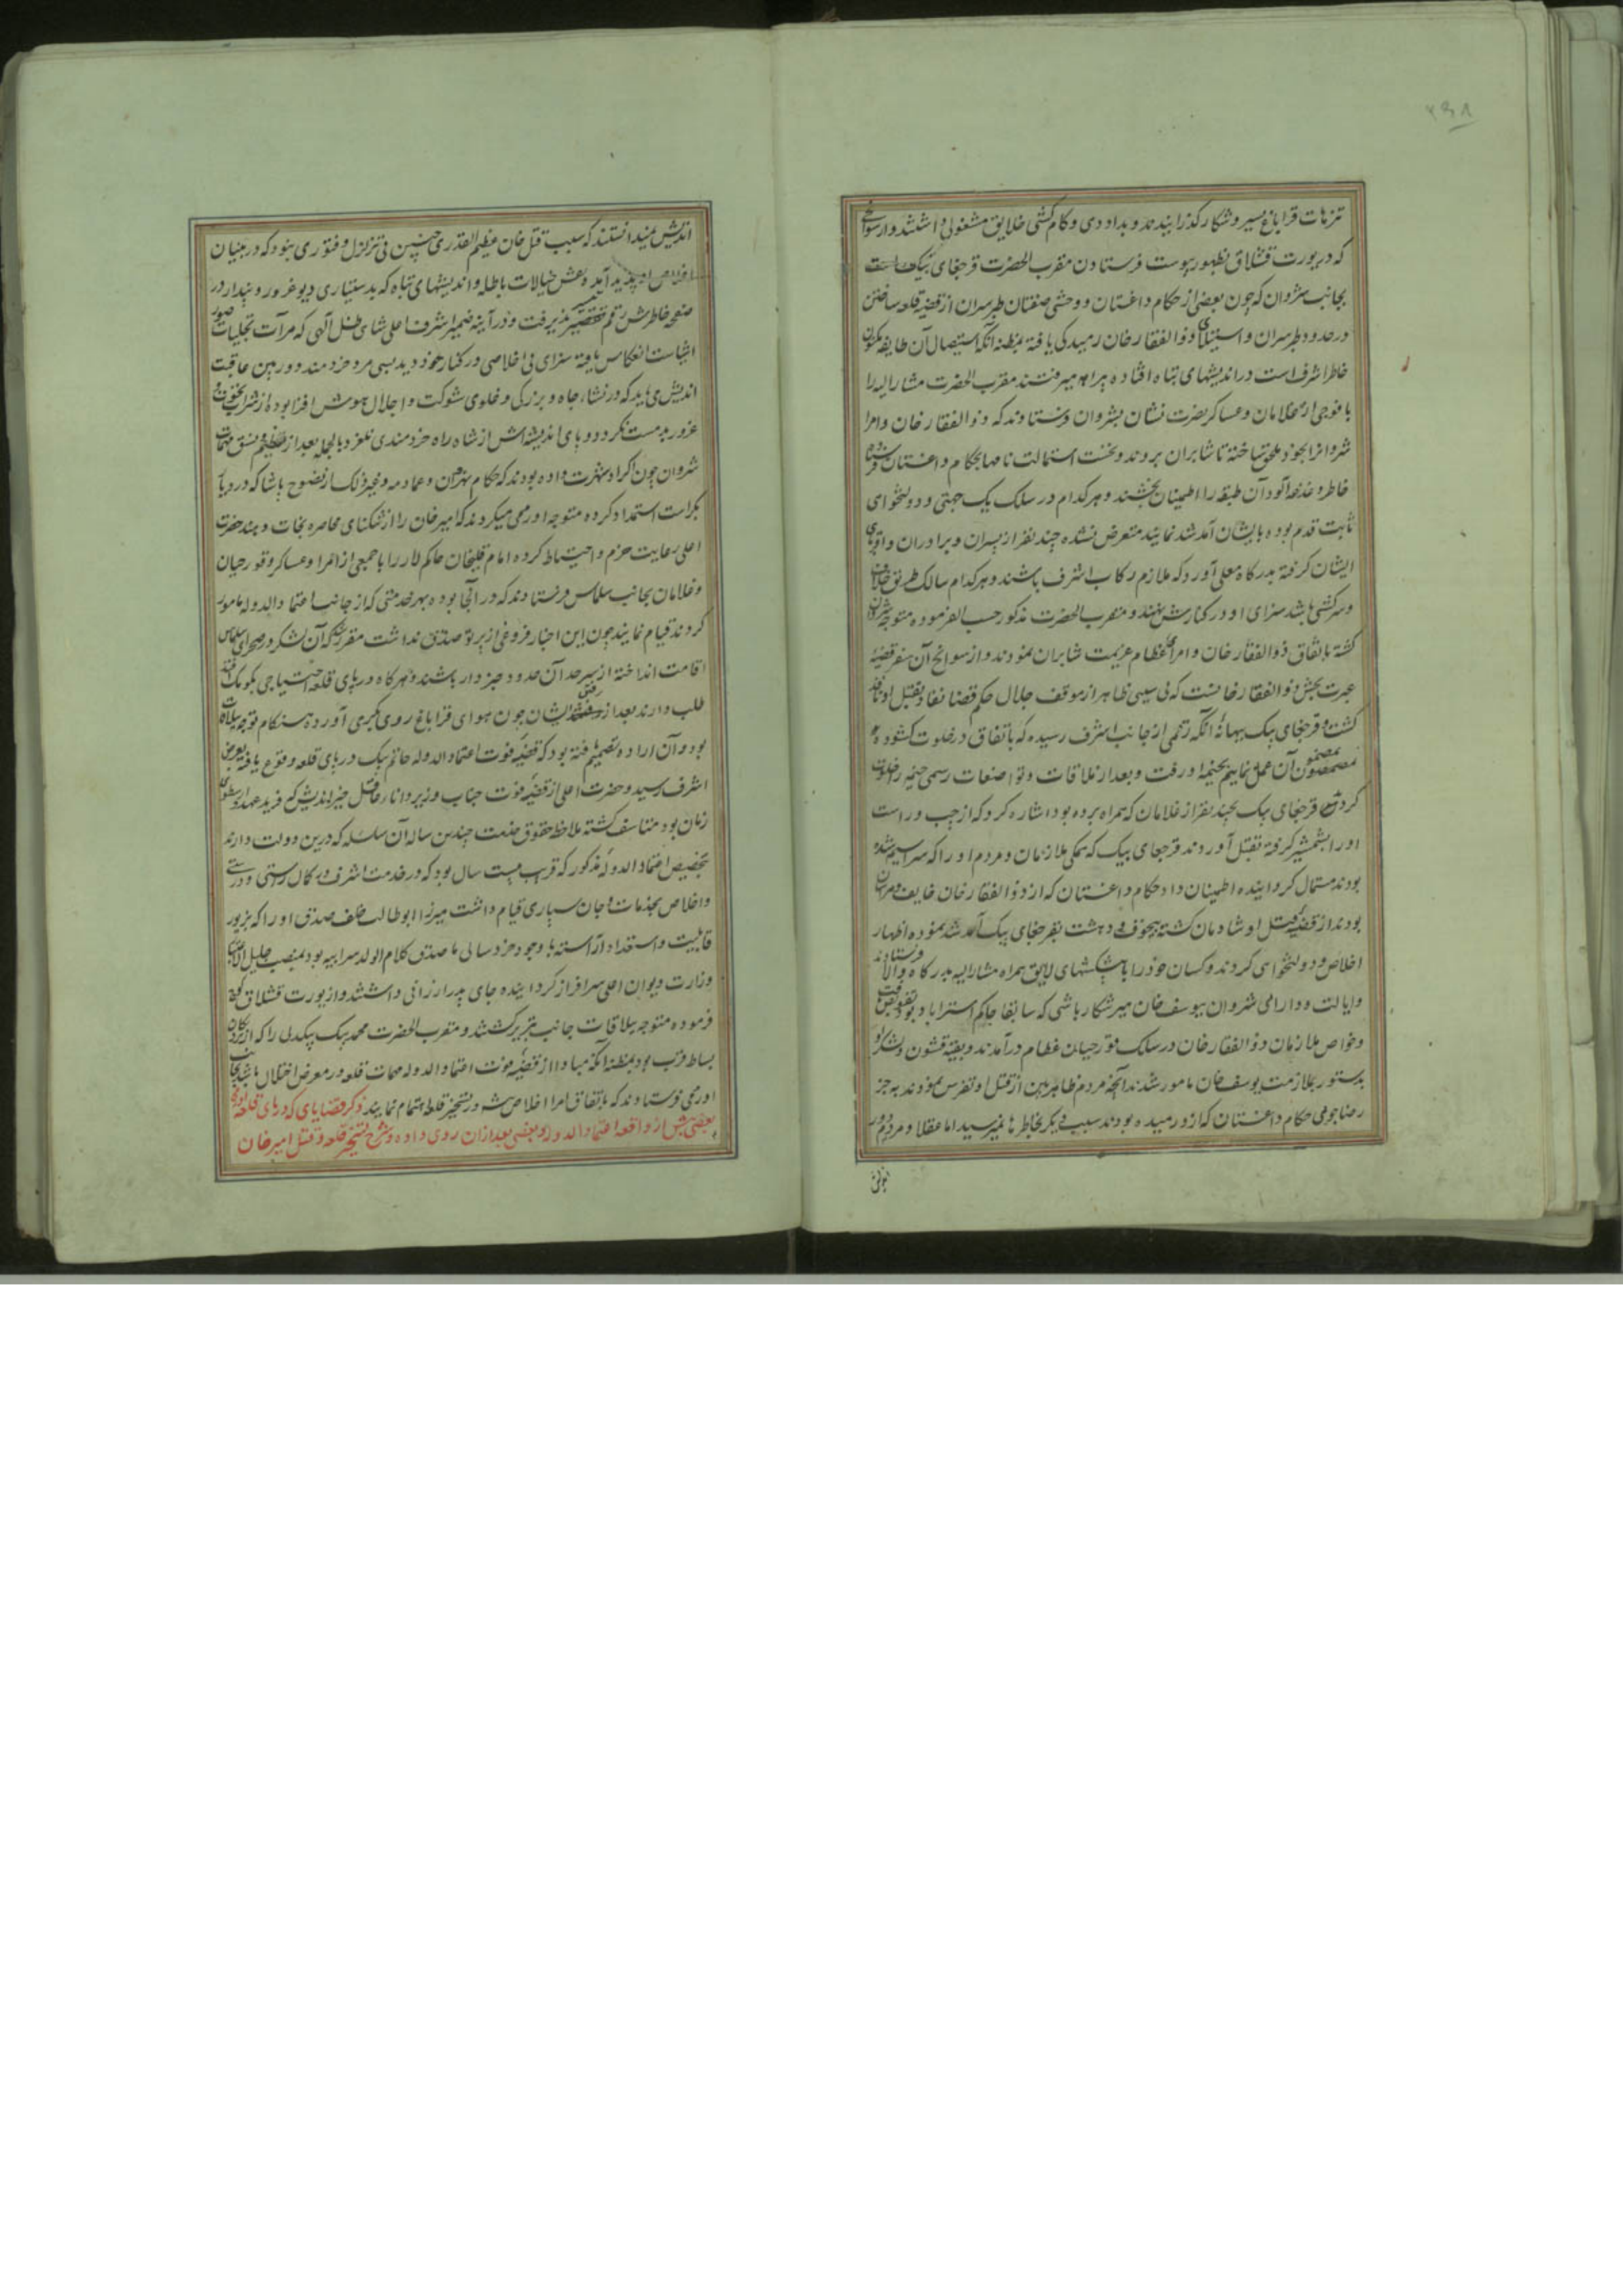 ۲۶۸
تنزهات قراباغ بسیر و شکار گذرانیدند و بداد دهی و کام بخشی خلایق مشغولی داشتند و از سوانحی
که در یورت قشلاق بظهور پیوست فرستادن مقرب الحضرت قرچغای بیک است
بجانب شروان که چون بعضی از حکام داغستان و وحشی صفتان طبرسران از قضیه قلعه ساختن
در حدود طبرسران و استیلای ذوالفقار خان رمیدگی یافته بمظنه آنکه استیصال آن طایفه مکنون
خاطر اشرف است در اندیشهای تباه افتاده بیراهه میرفتند مقرب الحضرت مشارالیه را
با فوجی از غلامان و عساکر نصرت نشان بشروان فرستادند که ذوالفقار خان و امرا
شروانرا بخود ملحق ساخته تا شابران بروند و نخست استمالت نامها بحکام داغستان فرستاده
خاطر دغدغه آلود آن طبقه را اطمینان بخشند و هر کدام در سلک یک جهتی و دولتخواهی
ثابت قدم بوده با ایشان آمد شد نمایند متعرض نشده چند نفر از پسران و برادران و اقربای
ایشان گرفته بدرگاه معلی آورد که ملازم رکاب اشرف باشند و هر کدام سالک طریق خلاف
و سرکشی باشد سزای او در کنارش نهند و مقرب الحضرت مذکور حسب الفرموده متوجه شروان
گشته باتفاق ذوالفقار خان و امرای عظام عزیمت شابران نمودند و از سوانح آن سفر قضیه
عبرت بخش ذوالفقار خانست که بی سببی ظاهر از موقف جلال حکم قضا نفاذ بقتل او نافذ
گشت و قرچغای بیک ببهانه آنکه رقمی از جانب اشرف رسیده که باتفاق در خلوت گشوده
بمضمون آن عمل نماییم بخیمه او رفت و بعد از ملاقات و تواضعات رسمی خیمه را خلوت
کرده قرچغای بیک بچند نفر از غلامان که همراه برده بود اشاره کرد که از چپ و راست
او را بشمشیر گرفته بقتل آوردند قرچغای بیک که همگی ملازمان و مردم او را که سراسیمه شده
بودند مستمال گردانیده اطمینان داد حکام داغستان که از ذوالفقار خان خایف و هراسان
بودند از قضیه قتل او شادمان گشته بیخوف و دهشت بقرچغای بیک آمد شد نموده اظهار
اخلاص و دولتخواهی کردند و کسان خود را با پیشکشهای لایق همراه مشارالیه بدرگاه والا فرستادند
و ایالت و دارائی شروان بیوسف خان میرشکار باشی که سابقا حاکم استراباد بود تفویض یافت
و خواص ملازمان ذوالفقار خان در سلک قورچیان عظام درآمدند و بقیه قشون و لشکر او
بدستور بملازمت یوسف خان مامور شدند آنچه مردم ظاهربین از قتل او تفرس نمودند به جز
رضاجوئی حکام داغستان که از و رمیده بودند سبب دیگر بخاطرها نمیرسید اما عقلا و مردم دور
اندیش میدانستند که سبب قتل خان عظیم القدری چنین فی تزلزل و فتوری نبود که در بنیان
اخلاص او پدید آمده نقش خیالات باطله و اندیشهای تباه که بدستیاری دیو غرور و پندار در
صفحه خاطرش رقم پذیرفت و در آینه ضمیر اشرف اعلی شاهی ظل آلهی که مرآت تجلیات صور
اشیاست انعکاس یافته سزای بی اخلاصی در کنار خود دید بسی مرد خردمند دوربین عاقبت
اندیش می باید که در نشاء جاه و بزرگی و غلوی شوکت و اجلال هوش افزا بوده از شراب نخوت و
غرور بدمست نگردد و پای اندیشه اش از شاه راه خردمندی نلغزد بالجمله بعد از تنظیم و نسق مهمات
شروان چون اکراد شهرت داده بودند که حکام و غیر ذلک از نصوح پاشا که در دیار
بکر است استمداد کرده متوجه اورمی میگردند که امیر خان را از تنگنای محاصره نجات دهند حضرت
اعلی رعایت حزم و احتیاط کرده امام قلیخان حاکم لار را با جمعی از امرا و عساکر و قورچیان
و غلامان بجانب سلماس فرستادند که در آنجا بوده بهر خدمتی که از جانب اعتماد الدوله مامور
گردند قیام نمایند چون این اخبار فروغی از پرتو صدق نداشت مقرر شد که آن لشکر در صحرای سلماس
اقامت انداخته از سرحد آن حدود خبردار باشند و هرگاه در پای قلعه احتیاجی بکومک افتد
طلب دارند بعد از رفتن ایشان چون هوای قراباغ روی بگرمی آورده هنگام توجه ییلاقات
بود و آن اراده تصمیم یافته بود که قضیه فوت اعتماد الدوله حاتم بیک در پای قلعه وقوع یافته بعرض
اشرف رسید و حضرت اعلی از قضیه فوت جناب وزیر دانا رفاقل خیراندیش که فرید عهد و ارسطوی
زمان بود متاسف گشته ملاحظه حقوق خدمت چندین ساله آن سلسله که درین دولت دارند
بتخصیص اعتماد الدوله مذکور که قریب بیست سال بود که در خدمت اشرف در کمال راستی و درستی
و اخلاص بخدمات و جان سپاری قیام داشت میرزا ابوطالب خلف صدق او را که بزیور
قابلیت و استعداد آراسته با وجود خرد سالی ما صدق کلام الولد سر ابیه بود بمنصب جلیل الشان
وزارت دیوان اعلی سرافراز گردانیده جای پدر ارزانی داشتند و از یورت قشلاق کوچ
فرموده متوجه ییلاقات جانب تبریز گشتند و مقرب الحضرت محمد بیک بیکدلی را که از نزدیکان
بساط قرب بود بمظنه آنکه مبادا از قضیه فوت اعتماد الدوله مهمات قلعه در معرض اختلال باشد بجانب
اورمی فرستادند که باتفاق امرا اخلاص شعار در تسخیر قلعه اهتمام نمایند ذکر قضایای که در پای قلعه اورمی
بعضی پیش از واقعه اعتماد الدوله و بعضی بعد ازان روی داده و شرح تسخیر قلعه و قتل امیر خان